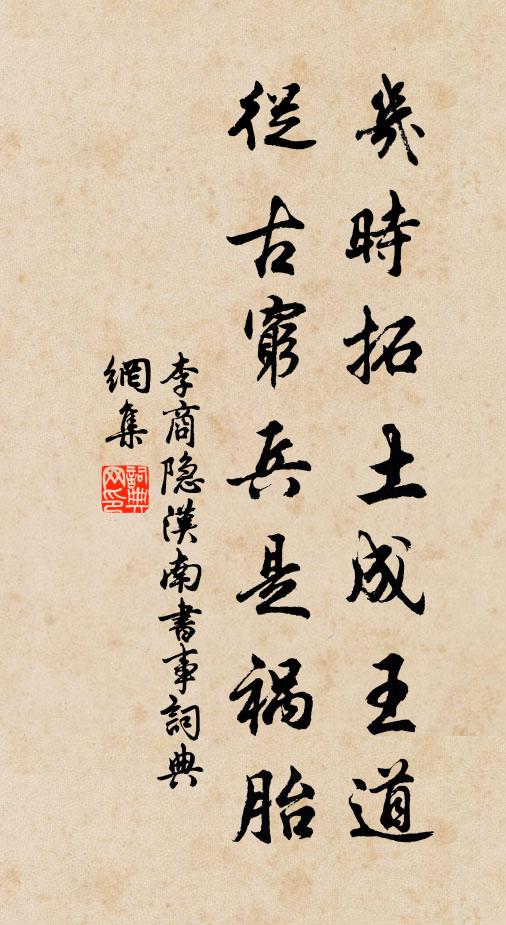 幾時拓土成王道
從古窮兵是禍胎
李商隐漢南書事詞典
網集
詞典
网印